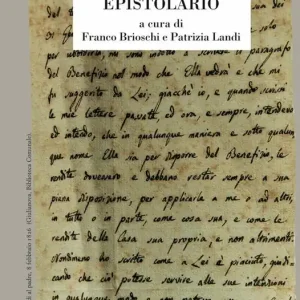 EPISTOLARIO
a cura di
Franco Brioschi e Patrizia Landi
mi sono inteso a scrivere il paragrafo
del Benefizio nel modo che Ella vedrà e che mi
fu suggerito da Lei; giacch'io, e quando scrissi
le mie lettere passate, ed ora, e sempre, intendevo
ed intendo, che in qualunque maniera e sotto qualun
que nome Ella sia per disporre del Benefizio, le
rendite dovessero e debbano restar sempre a sua
piena disposizione, per applicarle a me o ad altri,
in tutto o in parte, come cosa sua, e come le
rendite della Casa sua propria, e non altrimenti.
come è piaciuto, giudi
cando che ciò potesse servire alle sue intenzioni
in qualunque modo, e non
al padre, 8 febbraio 1826 (Giulianova, Biblioteca Comunale).